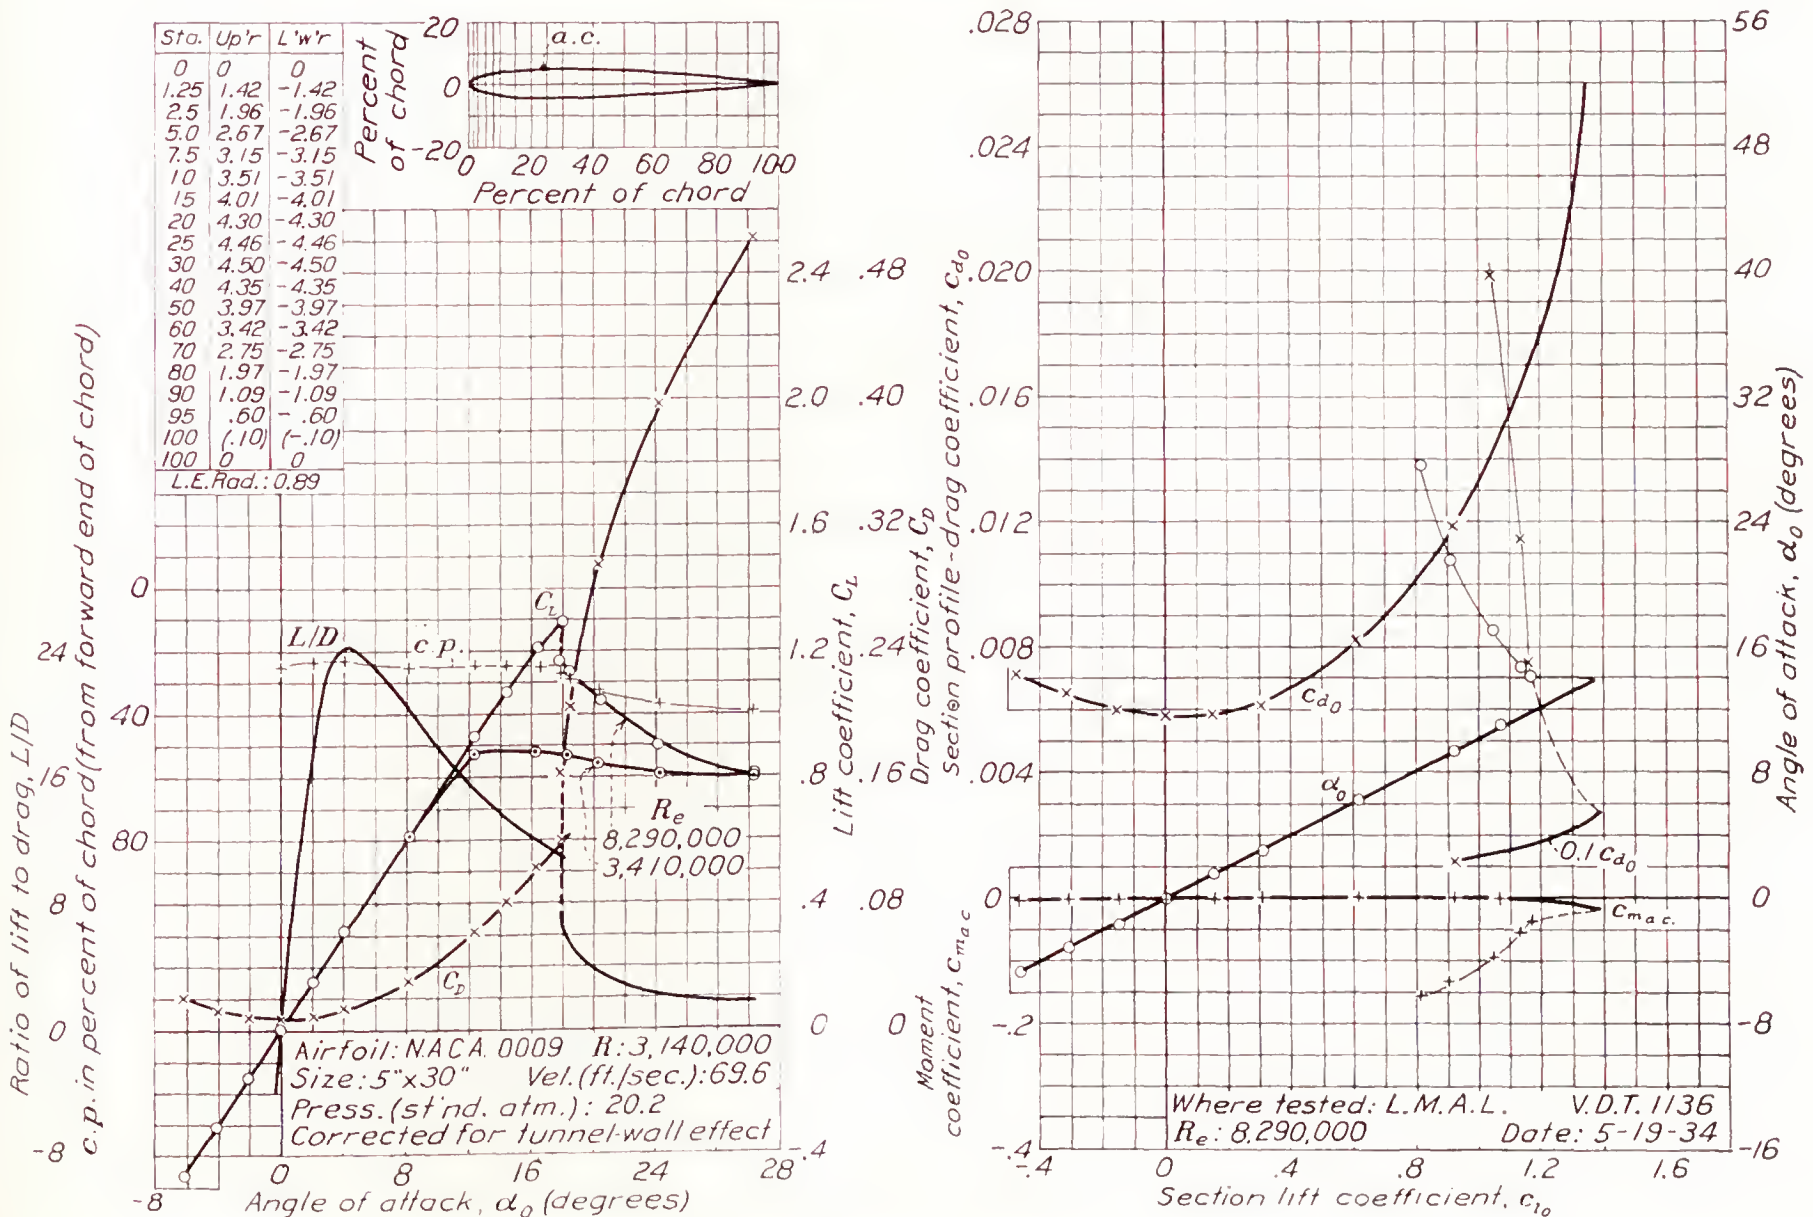 Sta. Up'r L'w'r
0 0 0
1.25 1.42 -1.42
2.5 1.96 -1.96
5.0 2.67 -2.67
7.5 3.15 -3.15
10 3.51 -3.51
15 4.01 -4.01
20 4.30 -4.30
25 4.46 -4.46
30 4.50 -4.50
40 4.35 -4.35
50 3.97 -3.97
60 3.42 -3.42
70 2.75 -2.75
80 1.97 -1.97
90 1.09 -1.09
95 .60 -.60
100 (.10) (-.10)
100 0 0
L.E.Rad.: 0.89
Percent
of chord
20
0
-20
a.c.
0 20 40 60 80 100
Percent of chord
Ratio of lift to drag, L/D
24
16
8
0
-8
c.p. in percent of chord (from forward end of chord)
0
40
80
L/D
c.p.
C_L
C_D
R_e
8,290,000
3,410,000
2.4 .48
2.0 .40
1.6 .32
1.2 .24
.8 .16
.4 .08
0 0
-.4
Lift coefficient, C_L
Drag coefficient, C_D
Airfoil: N.A.C.A. 0009 R: 3,140,000
Size: 5"x30" Vel.(ft./sec.): 69.6
Press.(st'nd. atm.): 20.2
Corrected for tunnel-wall effect
-8 0 8 16 24 28
Angle of attack, α₀ (degrees)
Section profile-drag coefficient, c_d₀
.028
.024
.020
.016
.012
.008
.004
0
-.2
-.4
Moment
coefficient, c_m a.c.
c_d₀
α₀
0.1 c_d₀
c_m a.c.
56
48
40
32
24
16
8
0
-8
-16
Angle of attack, α₀ (degrees)
Where tested: L.M.A.L. V.D.T. 1136
R_e: 8,290,000 Date: 5-19-34
-.4 0 .4 .8 1.2 1.6
Section lift coefficient, c_l₀